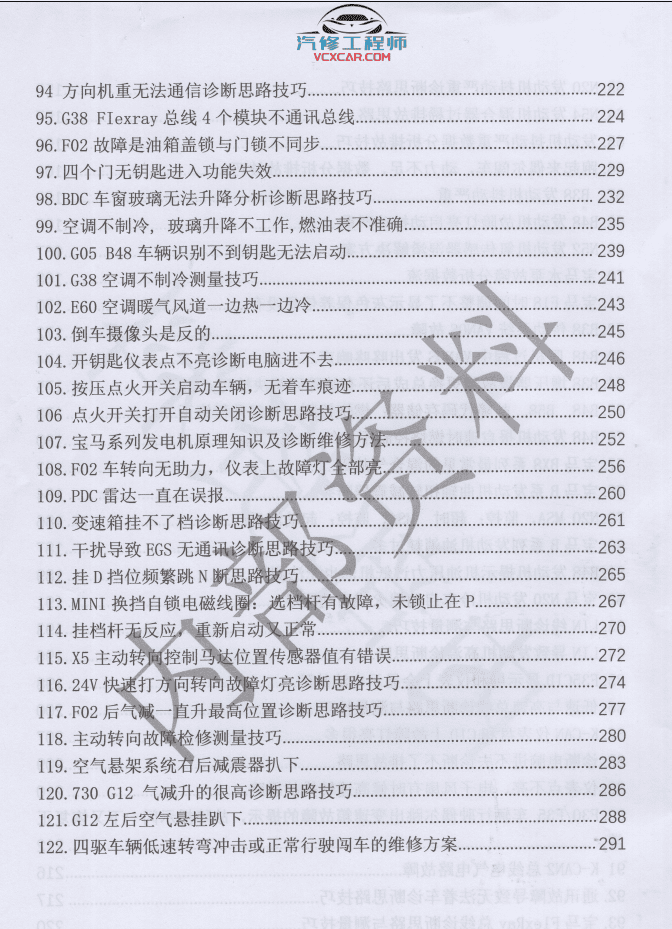 汽修工程师
VCXCAR.COM
94 方向机重无法通信诊断思路技巧........222
95.G38 Flexray 总线 4 个模块不通讯总线........224
96.F02 故障是油箱盖锁与门锁不同步........227
97.四个门无钥匙进入功能失效........229
98.BDC 车窗玻璃无法升降分析诊断思路技巧........232
99.空调不制冷, 玻璃升降不工作,燃油表不准确........235
100.G05 B48 车辆识别不到钥匙无法启动........239
101.G38 空调不制冷测量技巧........241
102.E60 空调暖气风道一边热一边冷........243
103.倒车摄像头是反的........245
104.开钥匙仪表点不亮诊断电脑进不去........246
105.按压点火开关启动车辆，无着车痕迹........248
106 点火开关打开自动关闭诊断思路技巧........250
107.宝马系列发电机原理知识及诊断维修方法........252
108.F02 车转向无助力，仪表上故障灯全部亮........256
109.PDC 雷达一直在误报........260
110.变速箱挂不了档诊断思路技巧........261
111.干扰导致 EGS 无通讯诊断思路技巧........263
112.挂 D 挡位频繁跳 N 断思路技巧........265
113.MINI 换挡自锁电磁线圈：选档杆有故障，未锁止在 P........267
114.挂档杆无反应，重新启动又正常........270
115.X5 主动转向控制马达位置传感器值有错误........272
116.24V 快速打方向转向故障灯亮诊断思路技巧........274
117.F02 后气减一直升最高位置诊断思路技巧........277
118.主动转向故障检修测量技巧........280
119.空气悬架系统右后减震器扒下........283
120.730 G12 气减升的很高诊断思路技巧........286
121.G12 左后空气悬挂趴下........288
122.四驱车辆低速转弯冲击或正常行驶闯车的维修方案........291
内部资料